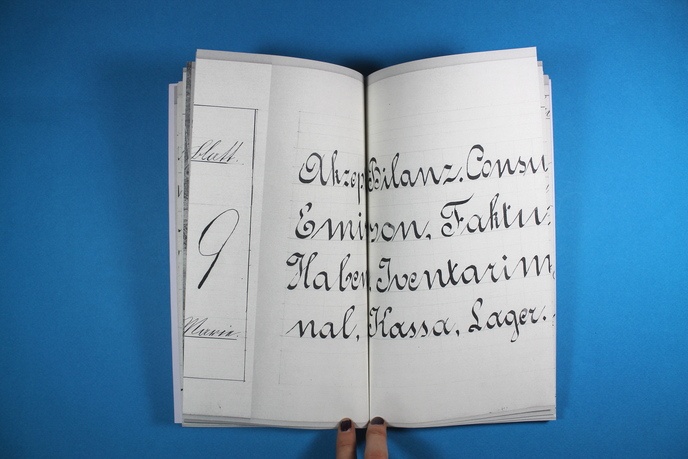 Blatt.
9
Marie
Akzep Bilanz. Consu
Emisson, Faktu
Haben Iventarium
nal, Kassa, Lager.